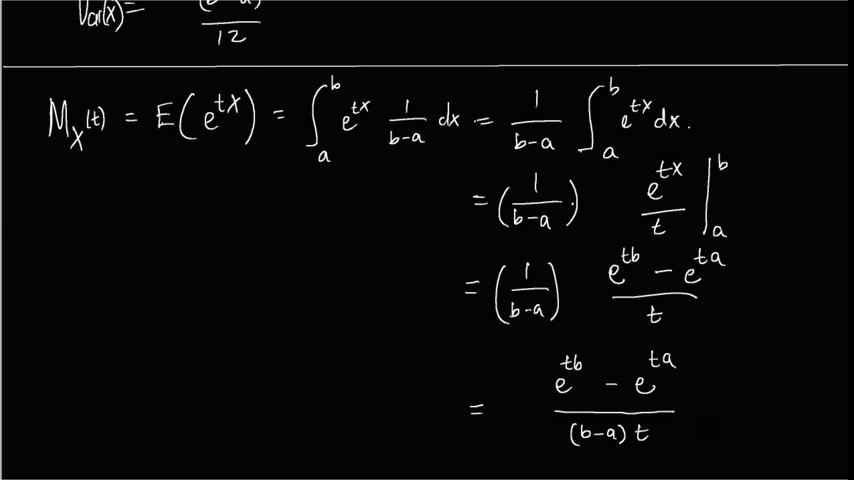 Var(x)= (b-a) / 12
M_X(t) = E(e^{tX}) = ∫_a^b e^{tx} 1/(b-a) dx = 1/(b-a) ∫_a^b e^{tx} dx.
= (1/(b-a)) e^{tx}/t |_a^b
= (1/(b-a)) (e^{tb} - e^{ta})/t
= (e^{tb} - e^{ta})/((b-a) t)